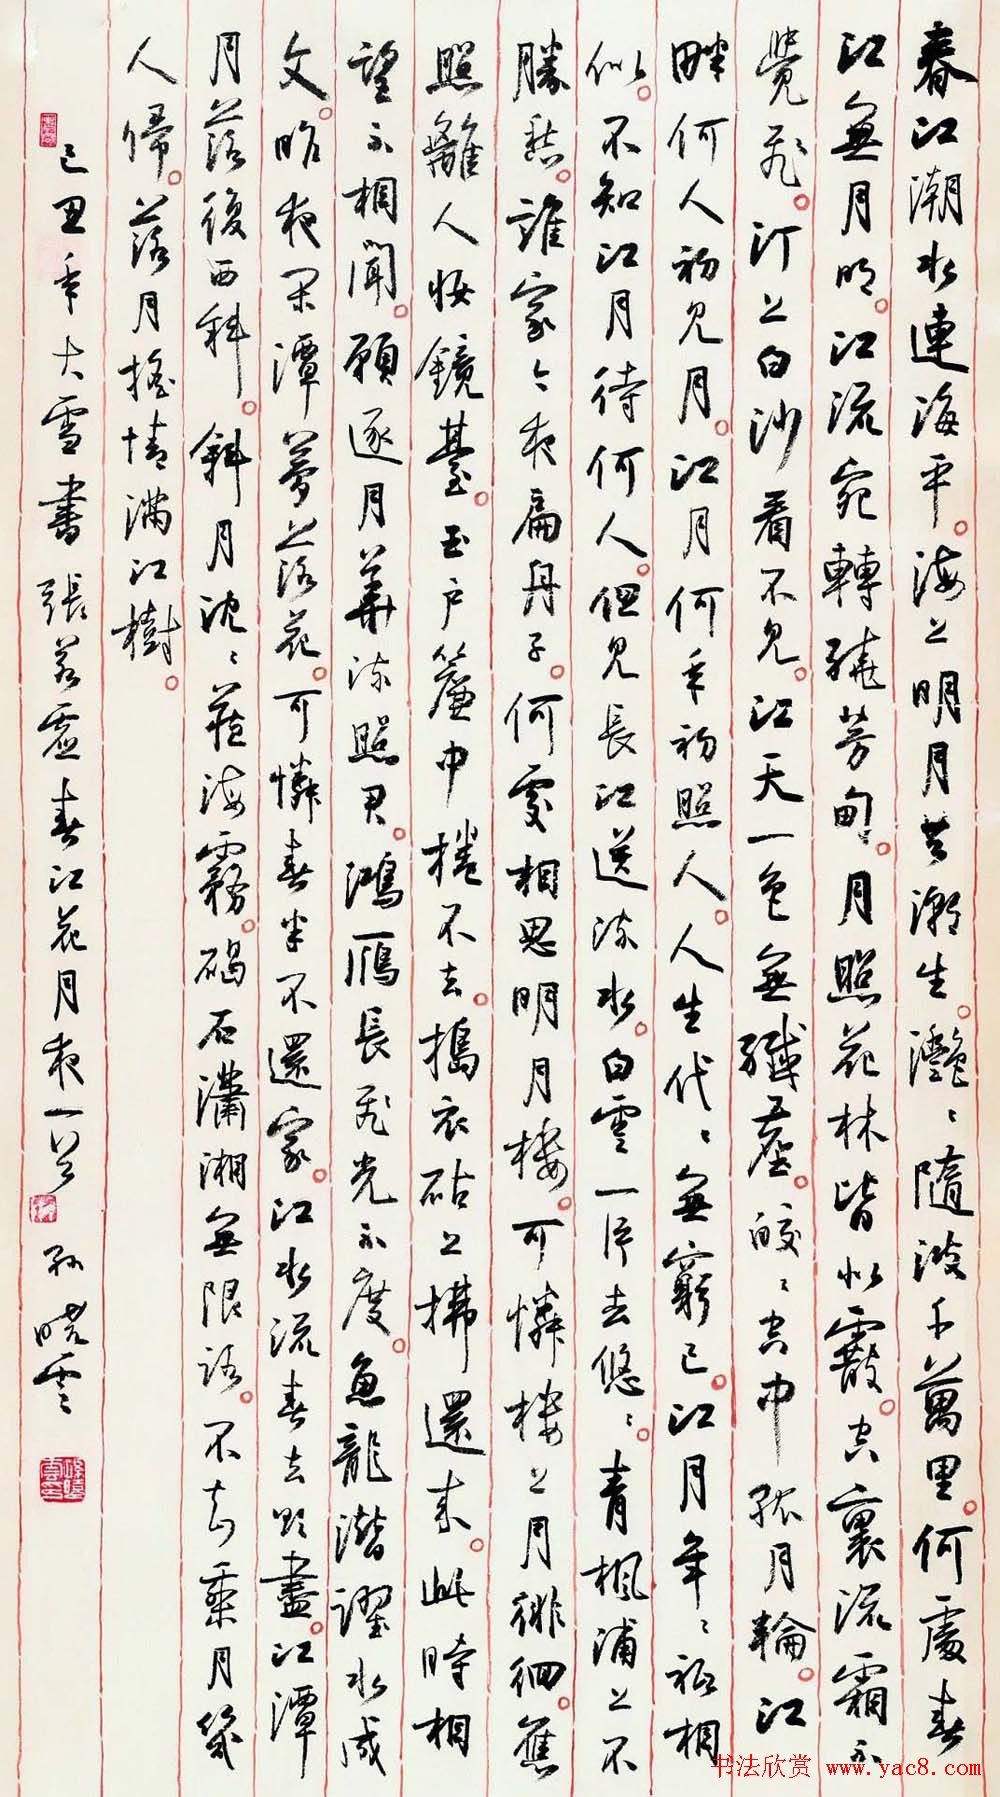 春江潮水連海平。海上明月共潮生。灧〻隨波千萬里。何處春
江無月明。江流宛轉繞芳甸。月照花林皆似霰。空裏流霜不
覺飛。汀上白沙看不見。江天一色無纖塵。皎〻空中孤月輪。江
畔何人初見月。江月何年初照人。人生代〻無窮已。江月年〻祗相
似。不知江月待何人。但見長江送流水。白雲一片去悠〻。青楓浦上不
勝愁。誰家今夜扁舟子。何處相思明月樓。可憐樓上月徘徊。應
照離人妝鏡臺。玉户簾中捲不去。搗衣砧上拂還來。此時相
望不相聞。願逐月華流照君。鴻雁長飛光不度。魚龍潛躍水成
文。昨夜閑潭夢落花。可憐春半不還家。江水流春去欲盡。江潭
月落復西斜。斜月沈〻藏海霧。碣石瀟湘無限路。不知乘月幾
人歸。落月搖情滿江樹。
己丑年大雪書張若虛春江花月夜一首 孫曉雲
书法欣赏 www.yac8.com